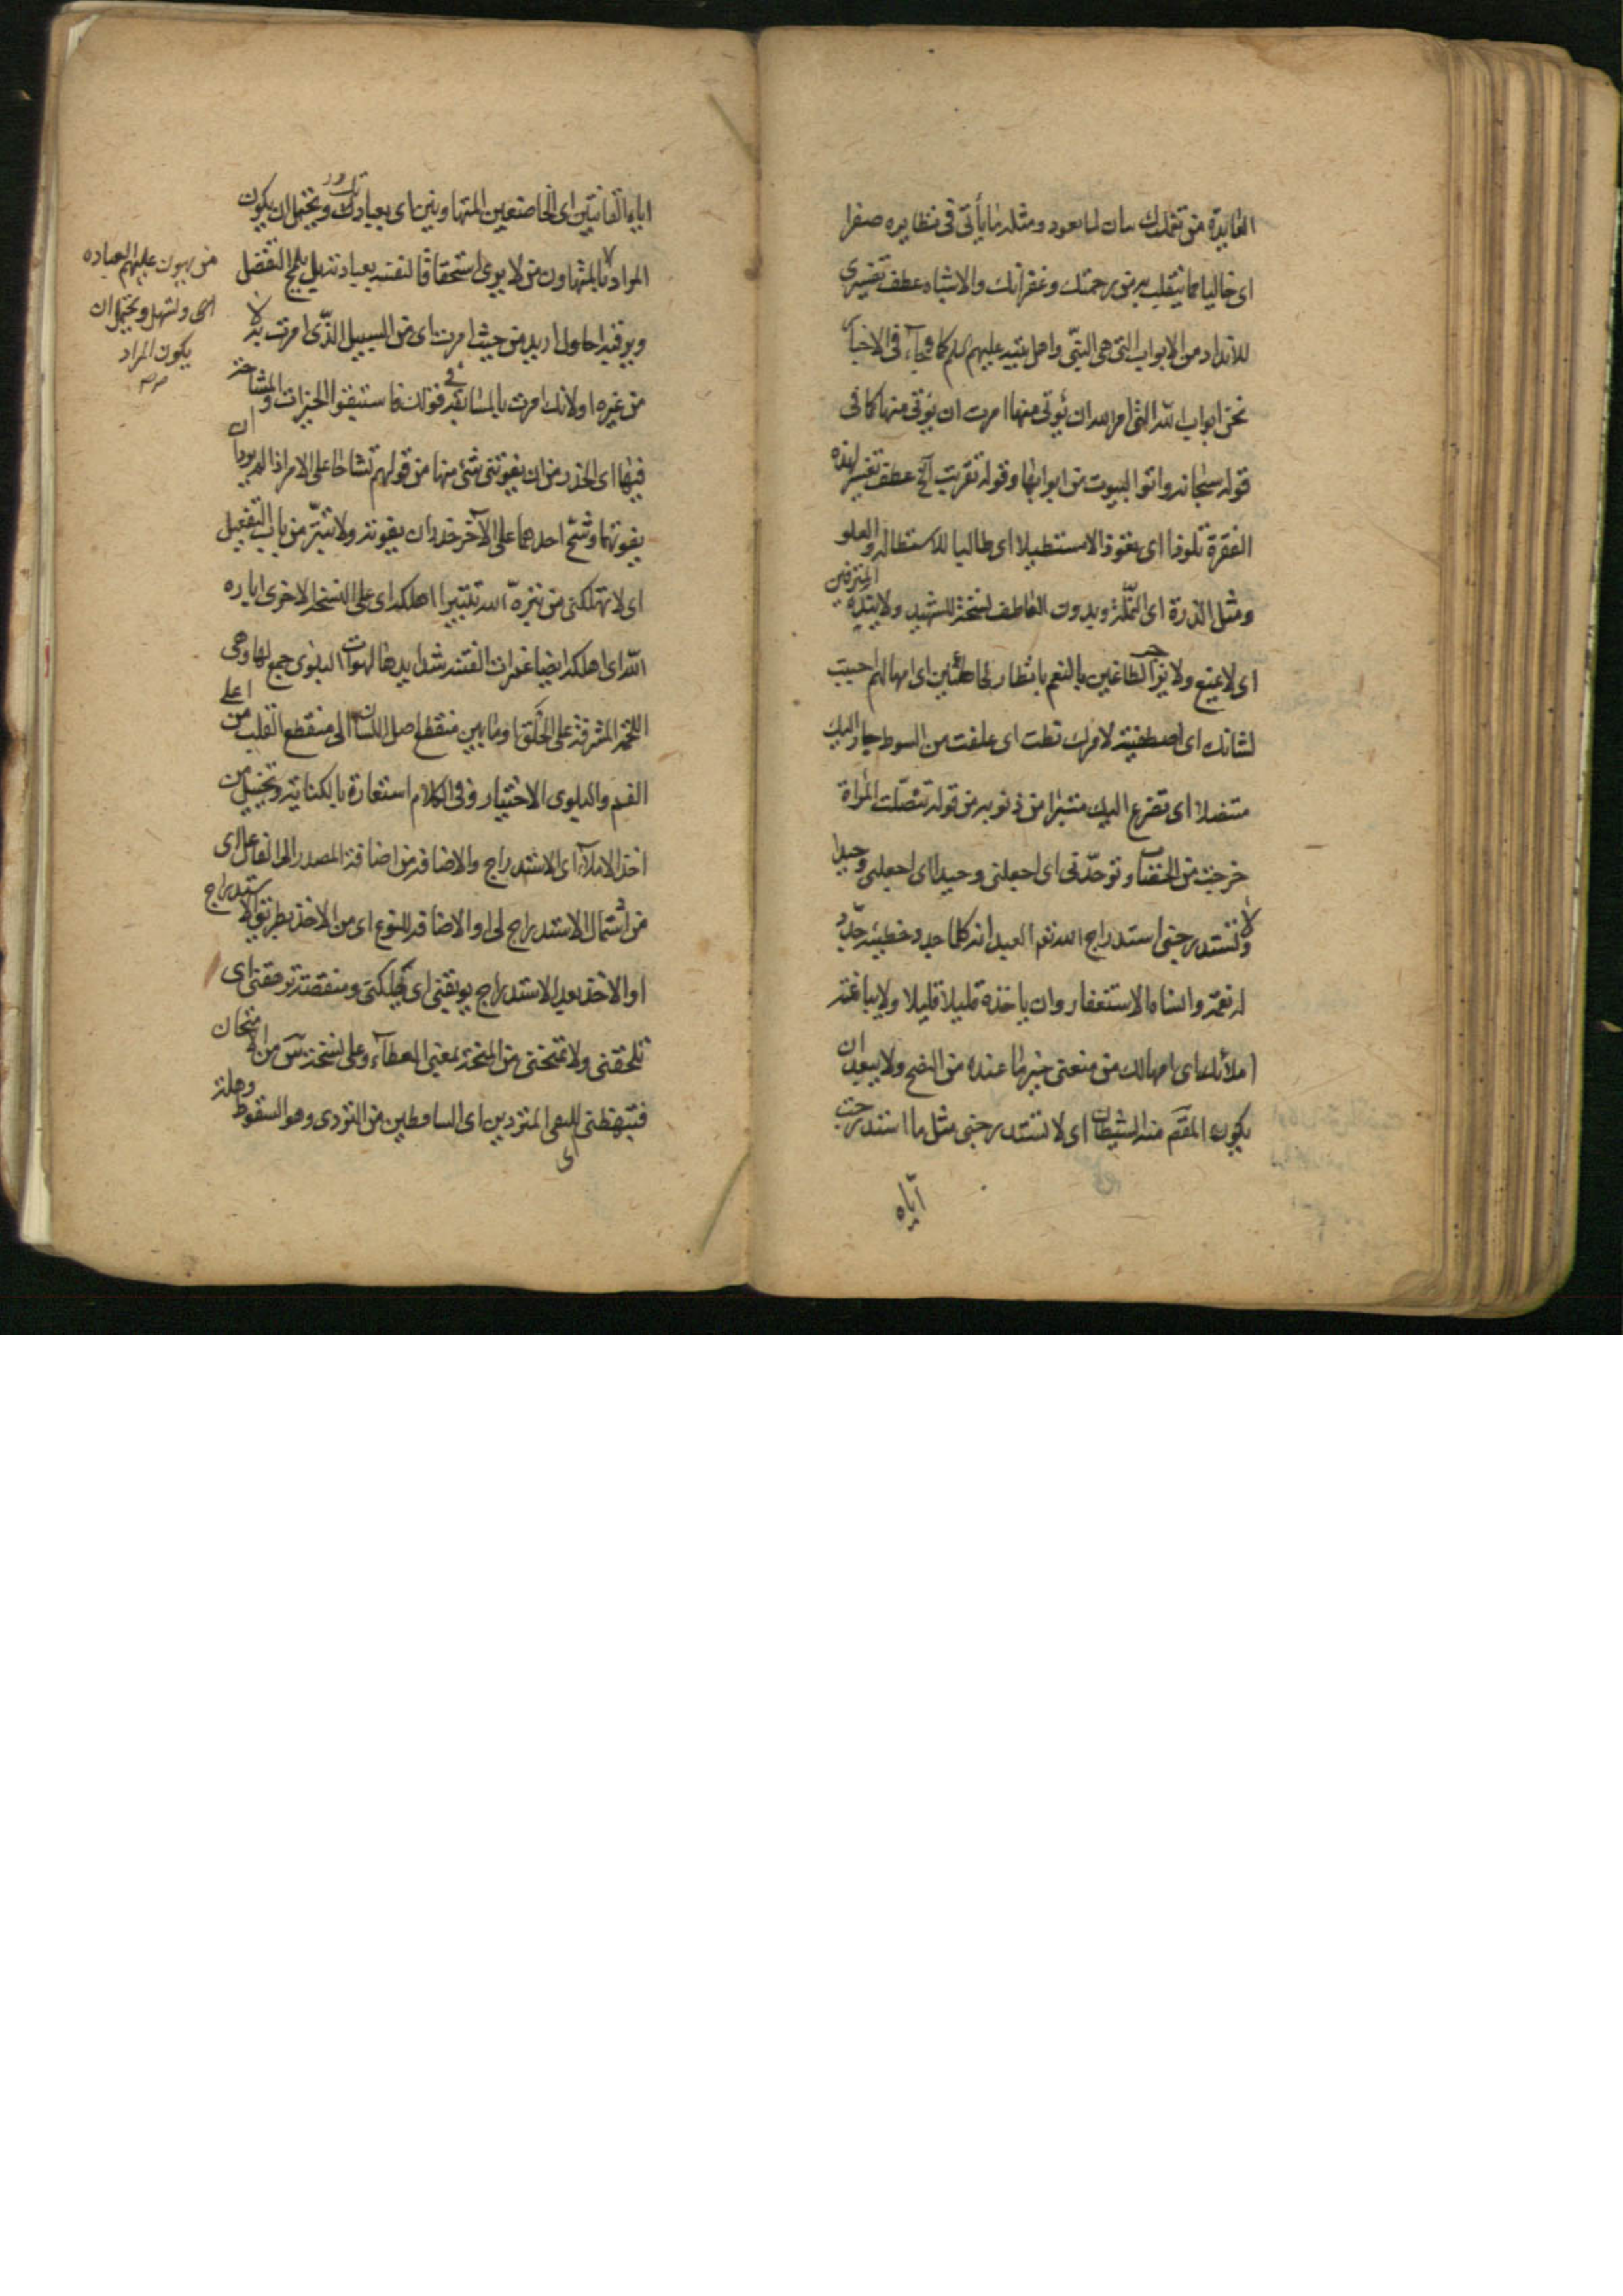 الفايدة من تملك بيان لما يعود ومثله ما يأتى فى نظايره صفرا
اى خاليا مما ينقلب به من رحمتك وغفرانك والاشباه عطف تفسيرى
للانداد من الابواب التى هى النبى واهل بيته عليهم السلم كما جاء فى الاخبار
نحن ابواب الله التى امر الله ان يؤتى منها امرت ان يؤتى منها كما فى
قوله سبحانه واتوا البيوت من ابوابها وقوله تقربت آلخ عطف تفسير لهذه
الفقرة تلوذا اى بتعوذ الا مستطيلا اى طالبا للاستطالة والعلو
ومثل الذرة اى النملة وبدون العاطف نسخة الشهيد ولا ينده المترفين
اى لا يمنع ولا يزجر الطاغين بالنعم بانظار الخاطئين اى امهالهم اجيب
لشانك اى اصطفيته لامرك نطت اى علقت من السوط جار اليك
متنصلا اى تضرع اليك متبرا من ذنوبه من قوله تنصلت المراة
خرجت من الخضاب وتوحدنى اى اجعلنى وحيدا اى اجعلنى وحيدا
ولا تستدرجنى استدراج الله تعم العبد انه كلما جدد خطيئة جدد
له نعمة وانساه الاستغفار وان ياخذه قليلا قليلا ولا يباغته
املائك اى امهالك من منعنى خير ما عنده من النصح ولا يبعد ان
يكون المقصم منه الشيطان اى لا تستدرجنى مثل ما استدرجت
اياه
اياه القانتين اى الخاضعين المتهاونين اى بعبادتك ويحتمل ان يكون
المراد بالمتهاون من لا يرى استحقاقا لنفسه بعبادته بل يلمح التفضل
ويوفيه احاول اريد من حيث امرت اى من السبيل الذى امرت به لا
من غيره اولانك امرت بالمسابقة فى قولك فاستبقوا الخيرات والمشاحة
فيها اى الحذر من ان يفوتنى شئ منها من قولهم تشاحا على الامر اذا لم يريدا ان
يفوتهما وشح احدهما على الآخر حذر ان يفوته ولا تتبر من باب التفعيل
اى لا تهلكنى من تبره الله تتبيرا اهلكه اى على النسخة الاخرى اباره
الله اى اهلكه ايضا غمرات الفتنه شدايدها لهوات البلوى جمع لهاة وهى
اللحمة المشرفة على الحلق او ما بين منقطع اصل اللسان الى منقطع القلب من اعلى
الفم والبلوى الاختبار وفى الكلام استعارة بالكناية وتخييل من
اخذ الاملاء اى الاستدراج والاضافة من اضافة المصدر الى الفاعل اى
من اشتمال الاستدراج لى او الاضافة للنوع اى من الاخذ بطريق الاستدراج
او الاخذ بعد الاستدراج يوبقنى اى يهلكنى ومنقصة ترهقنى اى
تلحقنى ولا تمنحنى من المنحة بمعنى العطاء وعلى نسخة س من الامتحان
فتبهظنى للهى المتردين اى الساقطين من التردى وهو السقوط وهلة
اى
من يهون عليهم العباده
اى وتسهل ويحتمل ان
يكون المراد